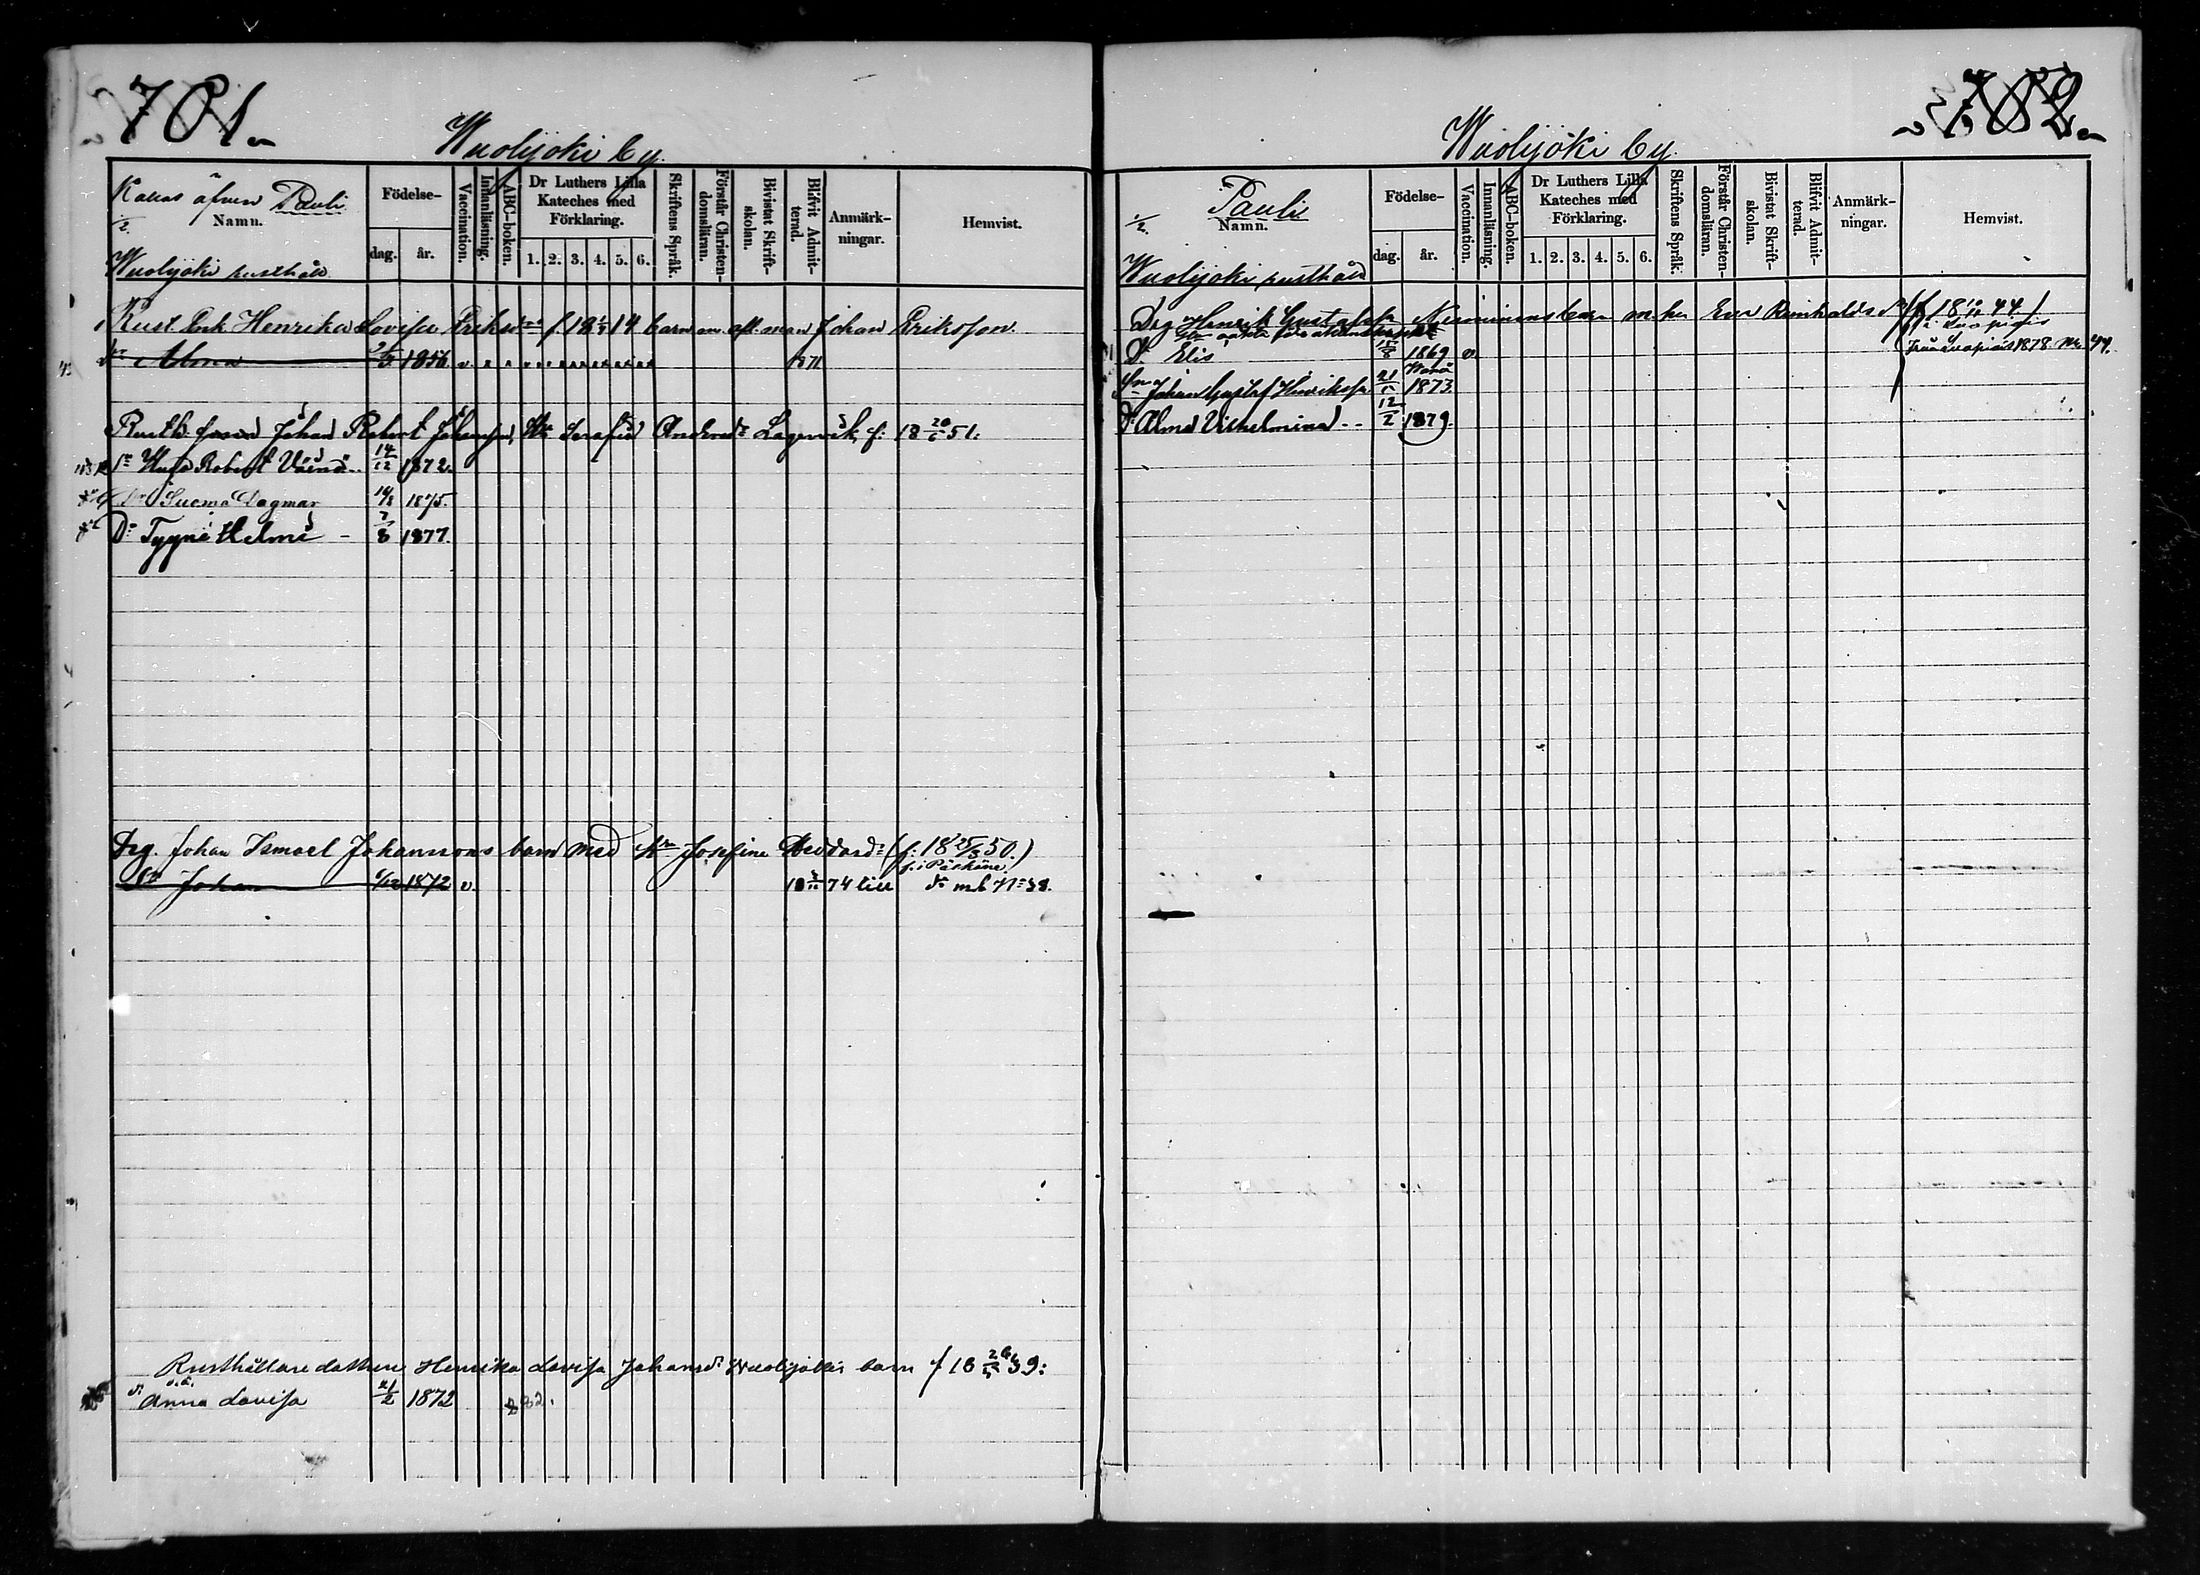 701.
Wuolijoki by.
Kallas äfven Pauli
½
Namn.
Wuolijoki rusthåll
Födelse-
dag.
år.
Vaccination.
Innanläsning.
ABC-boken.
Dr Luthers Lilla Kateches med Förklaring.
1. 2. 3. 4. 5. 6.
Skriftens Språk.
Förstår Christendomsläran.
Bivistat Skriftskolan.
Blifvit Admitterad.
Anmärkningar.
Hemvist.
Rust. Enk. Henrika Lovisa Eriksd f. 18 14 barn m. afl. man Johan Eriksson
Dr Alma 1856 v 1871
Rusth. Johan Robert Johansson, Hu Serafia Andersdr Lagervik f: 18 20/6 51:
Sn Hugo Robert Väinö 14/12 1872.
Dr Suema Dagmar 1875.
Dr Tyyne Helmi 7/8 1877.
Drg. Johan Ismael Johanssons barn med Hu Josefine (f: 18 25/8 50.)
f. i Päskäne.
Sn Johan 1872 v. 18 74 till
Rusthållare dottren Henrika Lovisa Johansdr Wuolijokis barn f 18 39:
o.ä.
dr Anna Lovisa 21/2 1872 882.
702.
Wuolijoki by.
½
Pauli
Namn.
Wuolijoki rusthåll
Födelse-
dag.
år.
Vaccination.
Innanläsning.
ABC-boken.
Dr Luthers Lilla Kateches med Förklaring.
1. 2. 3. 4. 5. 6.
Skriftens Språk.
Förstår Christendomsläran.
Bivistat Skriftskolan.
Blifvit Admitterad.
Anmärkningar.
Hemvist.
Drg Henrik Gustafss. Nieminens barn m. hu Eva Reinholdsdr (f. 18 44)
Dr Elis 1869 v. 1878. No. 44.
Sn Johan Gustaf Henrikss. 21 1873.
Dr Alma Vilhelmina 12/2 1879.